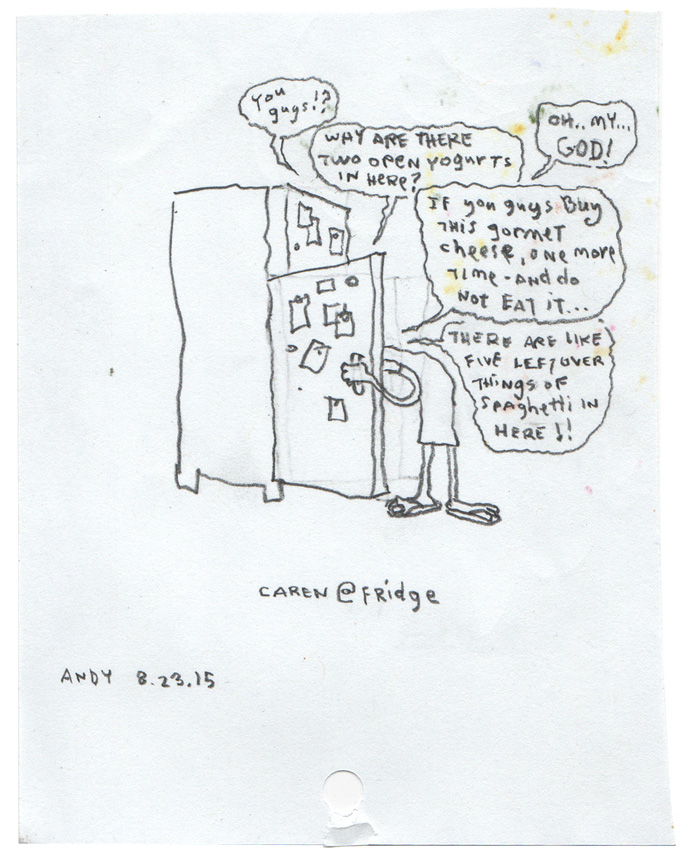 You
guys!?
WHY ARE THERE
TWO OPEN YOGURTS
IN HERE?
OH.. MY...
GOD!
If you guys Buy
THIS gormet
cheese, one more
Time - AND do
NOT EAT iT...
THERE ARE LIKE
FIVE LEFTOVER
THINGS OF
SPAGHETTI IN
HERE !!
CAREN @ FRidge
ANDY 8.23.15